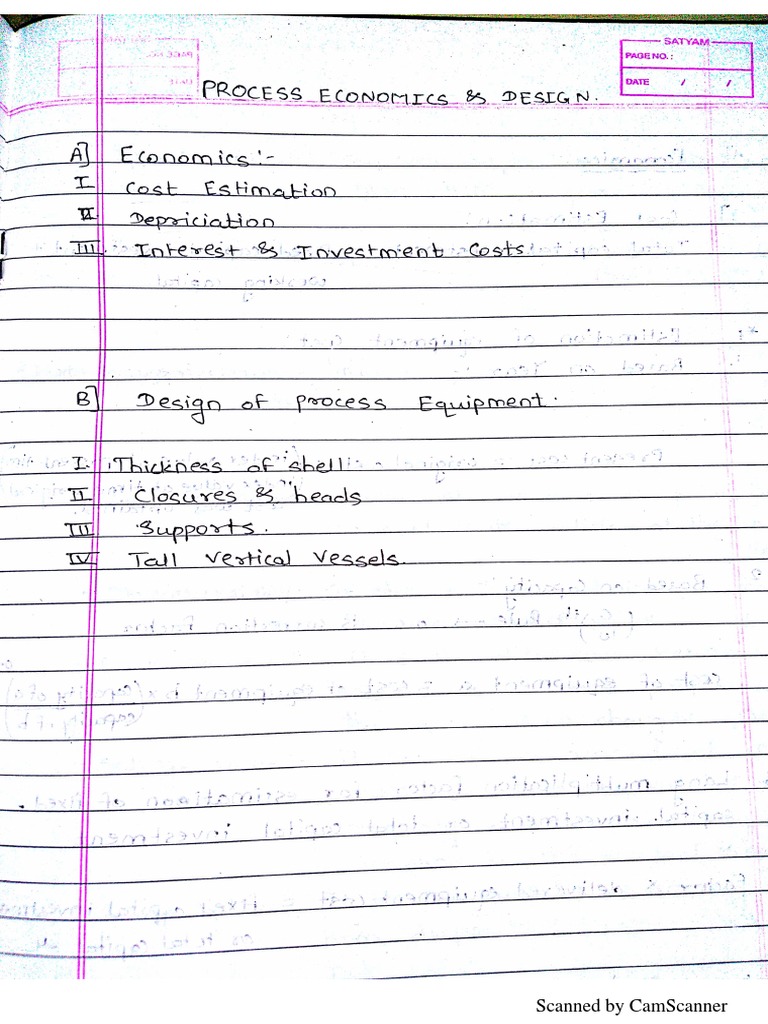 SATYAM
PAGE NO. :
DATE / /
PROCESS ECONOMICS & DESIGN.
A] Economics :-
I Cost Estimation
II Depriciation
III Interest & Investment Costs
B] Design of Process Equipment.
I. Thickness of shell
II Closures & heads
III Supports.
IV Tall vertical vessels.
Scanned by CamScanner